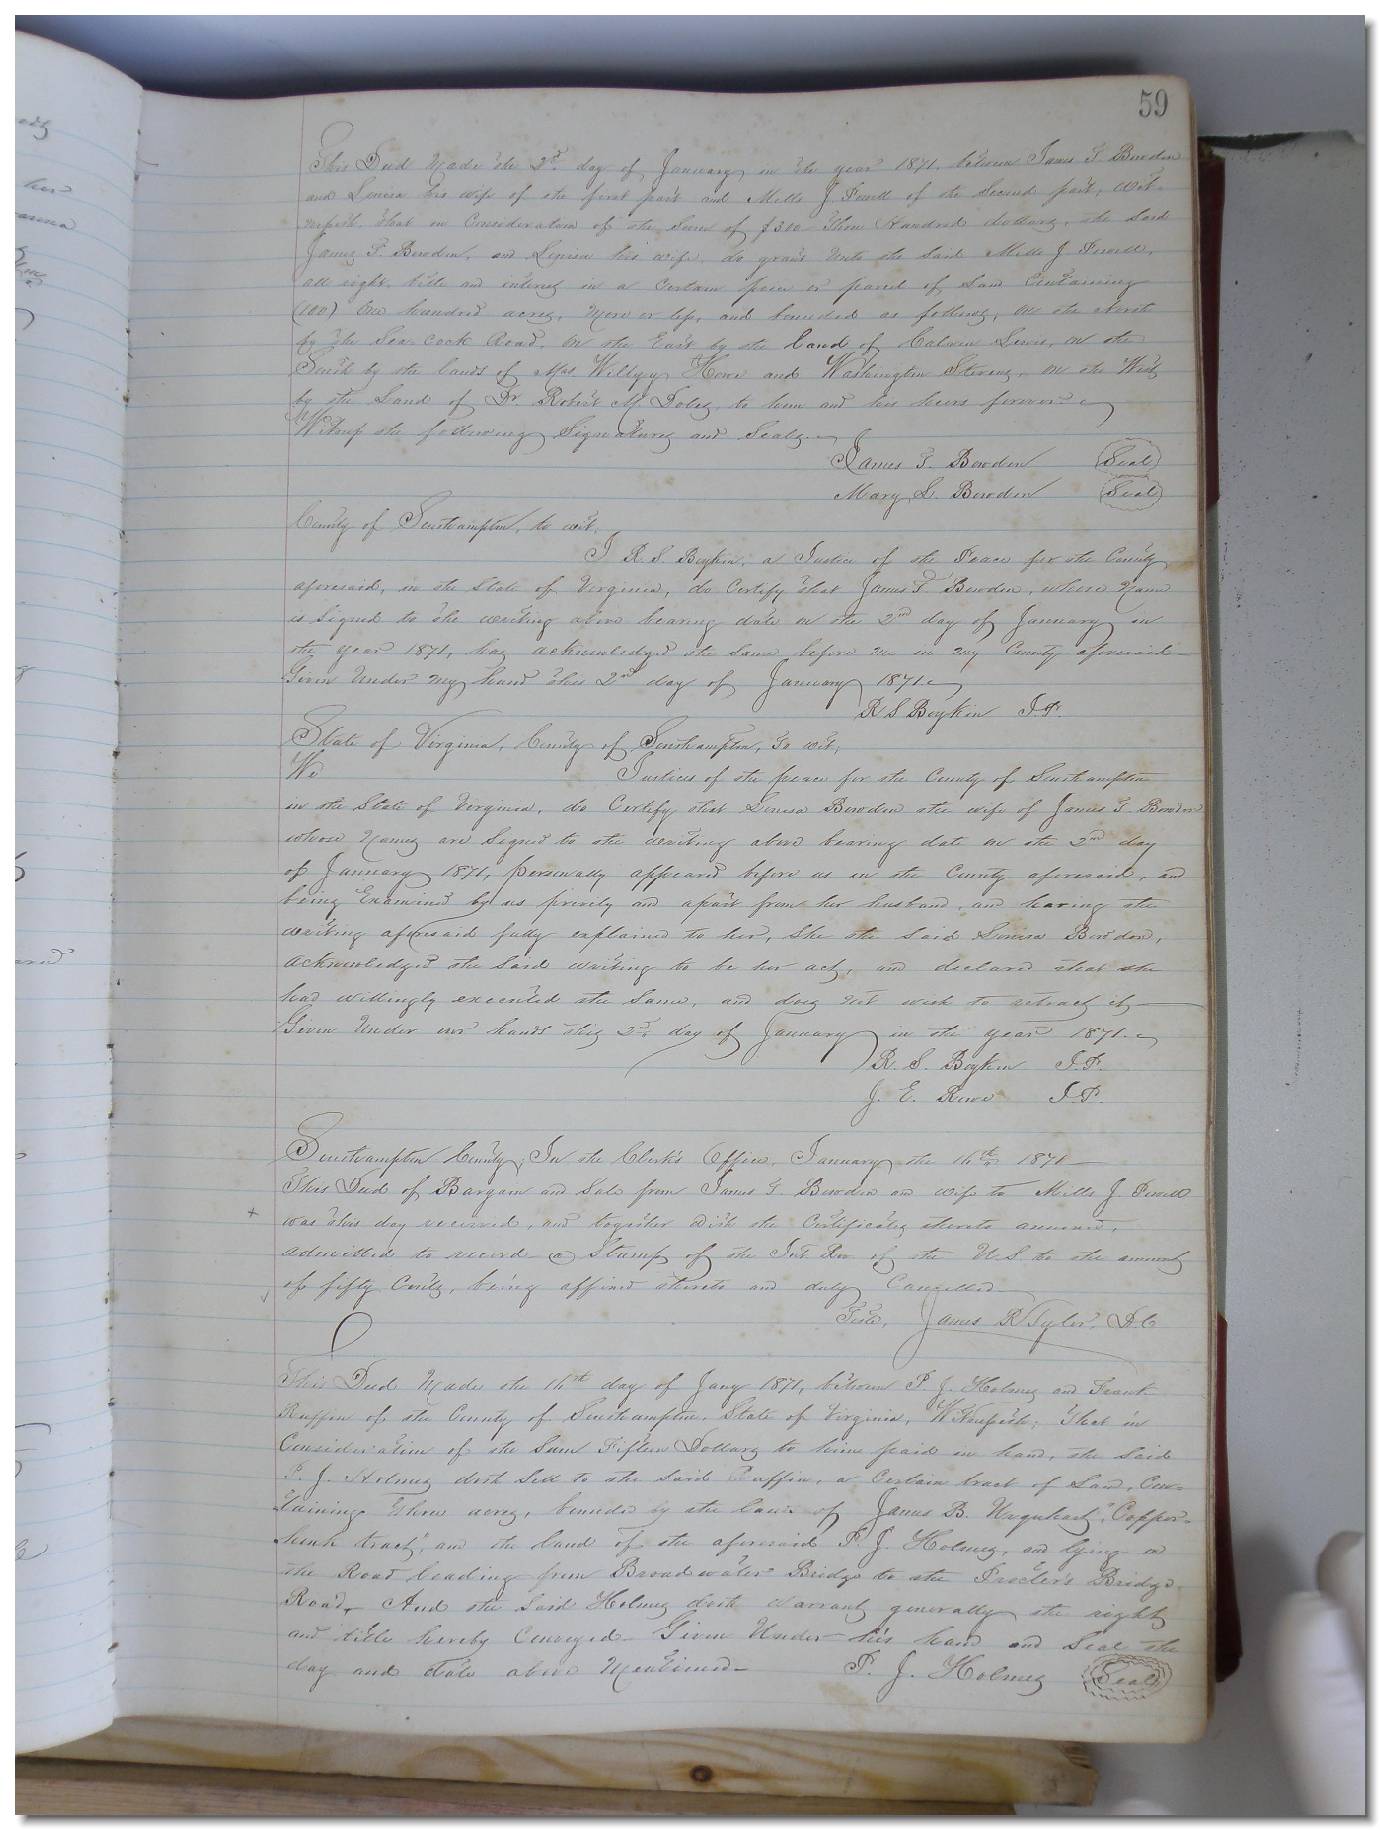 59
This Deed Made the 2nd day of January in the year 1871, between James T Bowden
and Louisa his wife of the first part and Mills J of the Second part, Wit-
nesseth, that in Consideration of the Sum of $300 Three Hundred dollars, the Said
James T. Bowden, and Louisa his wife, do grant Unto the Said Mills J
all right, title and interest in a Certain piece or parcel of Land Containing
(100) One hundred acres, More or less, and bounded as follows, on the North
by the Sea-cock Road, on the East by the Land of Calvin Lewis, on the
South by the lands of Mrs and Washington Stevens, on the West
by the Land of Dr. Robert M. to him and his heirs forever
Witness the following Signatures and Seals.
James T. Bowden (Seal)
Mary L. Bowden (Seal)
County of Southampton, to wit,
I R. S. Boykin, a Justice of the Peace for the County
aforesaid, in the State of Virginia, do Certify that James T Bowden, whose Name
is Signed to the writing above bearing date on the 2nd day of January in
the year 1871, has acknowledged the Same before me in my County aforesaid
Given Under my hand this 2nd day of January 1871
R S Boykin J.P.
State of Virginia, County of Southampton, To wit;
We Justices of the peace for the County of Southampton
in the State of Virginia, do Certify that Louisa Bowden the wife of James T. Bowden
whose Names are Signed to the writing above bearing date on the 2nd day
of January 1871, personally appeared before us in the County aforesaid, and
being Examined by us privily and apart from her husband, and having the
writing aforesaid fully explained to her, She the Said Louisa Bowden,
acknowledged the Said writing to be her act, and declared that she
had willingly executed the Same, and does not wish to retract it
Given Under our hands this 2nd day of January in the year 1871.
R. S. Boykin J.P.
J. E. Rowe J.P.
Southampton County, In the Clerk's Office, January the 16th 1871
This Deed of Bargain and Sale from James T Bowden and wife to Mills J
was this day received, and together With the Certificates thereto annexed,
admitted to record a Stamp of the Int Rev of the U S to the amount
of fifty Cents, being affixed thereto and duly Cancelled
Teste, James R Tyler, D.C
This Deed Made the 16th day of Jany 1871, between P. J. Holmes and Frank
Ruffin of the County of Southampton, State of Virginia, Witnesseth; That in
Consideration of the Sum Fifteen Dollars to him paid in hand, the Said
P. J. Holmes doth Sell to the Said Ruffin, a Certain tract of Land, Con-
taining Three acres, bounded by the land of James B. Urquhart, "Coppor-
hunk tract", and the land of the aforesaid P. J. Holmes, and lying on
the Road leading from Broadwater Bridge to the Procter's Bridge
Road. And the Said Holmes doth warrant generally the right
and title hereby Conveyed Given Under his hand and Seal the
day and date above Mentioned P. J. Holmes (Seal)